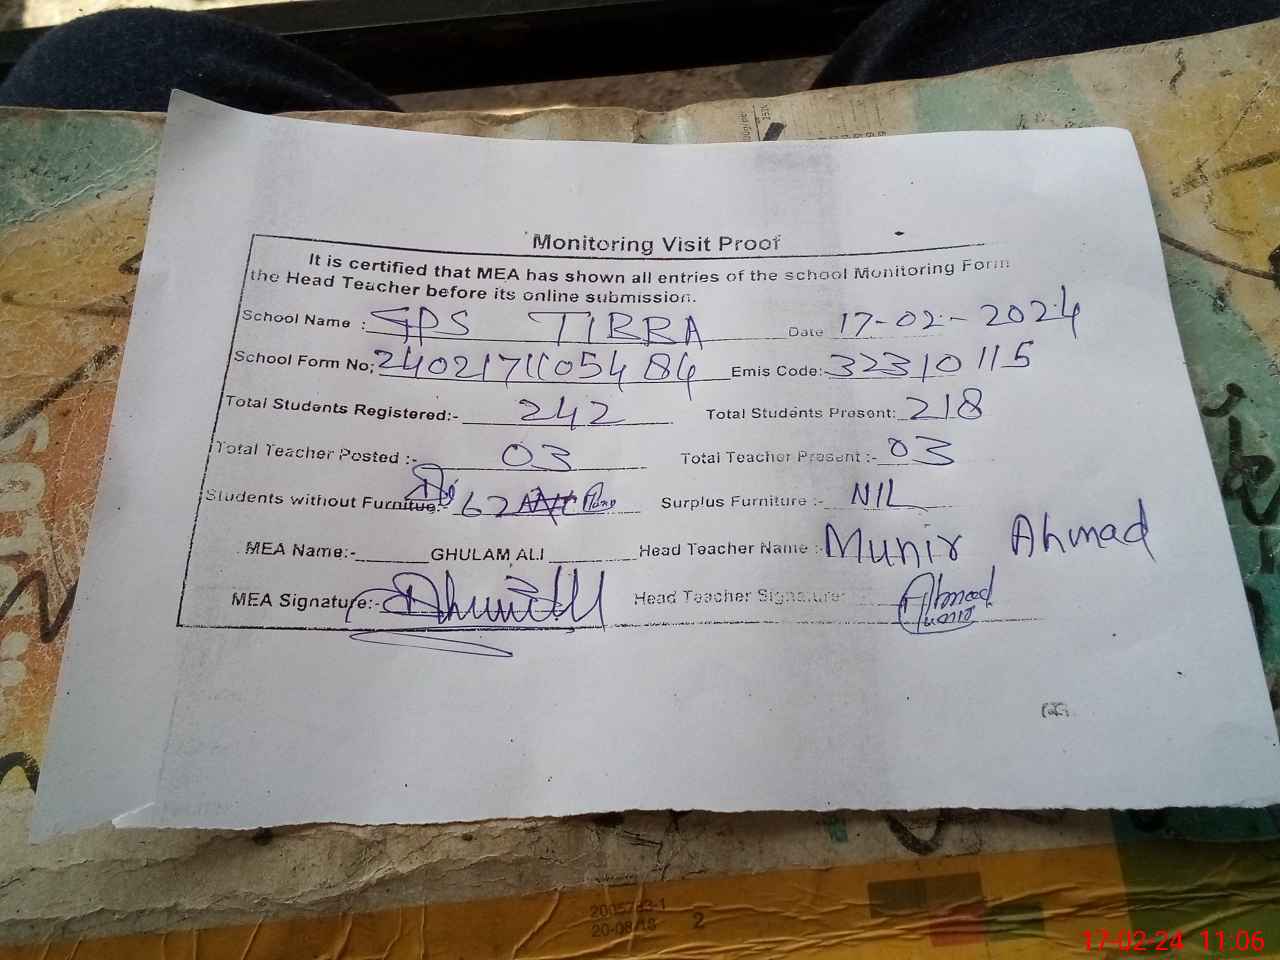 Monitoring Visit Proof
It is certified that MEA has shown all entries of the school Monitoring Form
the Head Teacher before its online submission.
School Name : GPS TIBBA Date 17-02-2024
School Form No; 24021711054 84 Emis Code:- 32310115
Total Students Registered:- 242 Total Students Present:- 218
Total Teacher Posted :- 03 Total Teacher Present :- 03
Students without Furnitue:- 62 Surplus Furniture :- NIL
MEA Name:- GHULAM ALI Head Teacher Name :- Munir Ahmad
MEA Signature:- Head Teacher Signature:
Ahmad
2
17-02-24 11:06